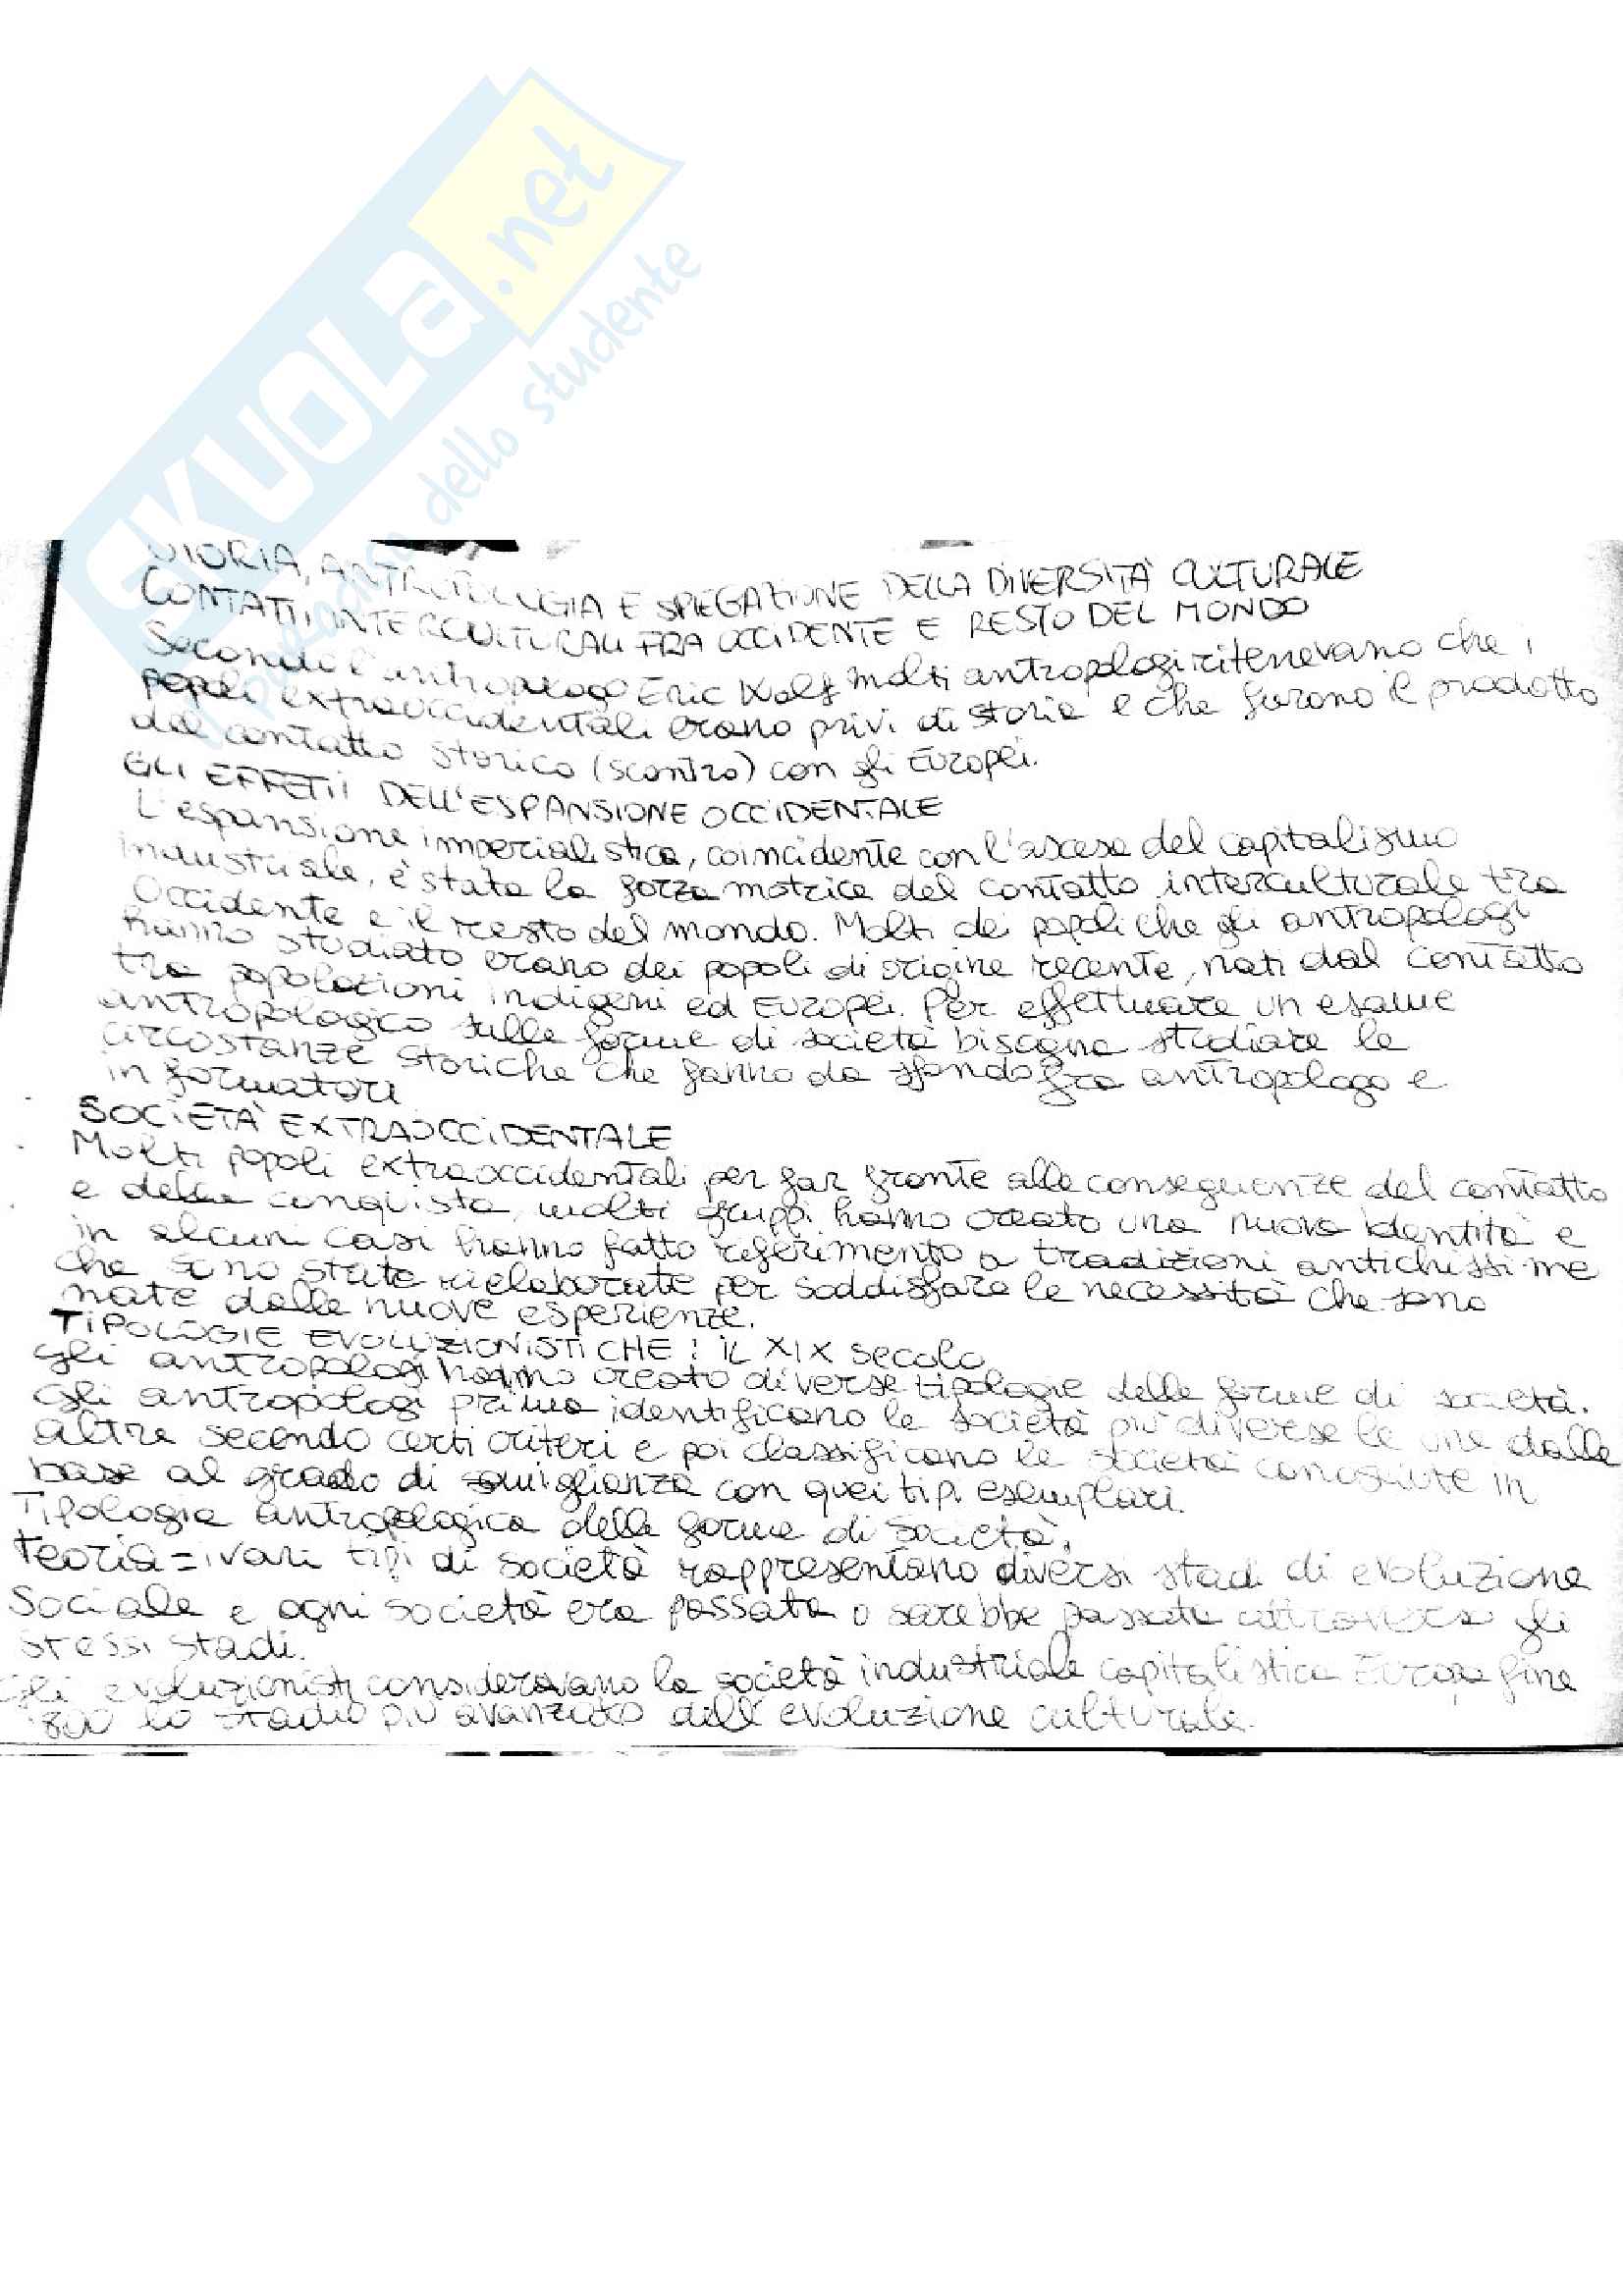 SKUOLA.net
il paradiso dello studente
STORIA, ANTROPOLOGIA E SPIEGAZIONE DELLA DIVERSITÀ CULTURALE
CONTATTI INTERCULTURALI FRA OCCIDENTE E RESTO DEL MONDO
Secondo l'antropologo Eric Wolf molti antropologi ritenevano che i
popoli extraoccidentali erano privi di storia e che furono il prodotto
del contatto storico (scontro) con gli Europei.
GLI EFFETTI DELL'ESPANSIONE OCCIDENTALE
L'espansione imperialistica, coincidente con l'ascesa del capitalismo
industriale, è stata la forza motrice del contatto interculturale tra
Occidente e il resto del mondo. Molti dei popoli che gli antropologi
hanno studiato erano dei popoli di origine recente, nati dal contatto
tra popolazioni indigeni ed Europei. Per effettuare un esame
antropologico sulle forme di società bisogna studiare le
circostanze storiche che fanno da sfondo fra antropologo e
informatori
SOCIETÀ EXTRAOCCIDENTALE
Molti popoli extraoccidentali per far fronte alle conseguenze del contatto
e della conquista, molti gruppi hanno creato una nuova identità e
in alcuni casi hanno fatto riferimento a tradizioni antichissime
che sono state rielaborate per soddisfare le necessità che sono
nate dalle nuove esperienze.
TIPOLOGIE EVOLUZIONISTICHE: IL XIX secolo
Gli antropologi hanno creato diverse tipologie delle forme di società.
Gli antropologi prima identificano le società più diverse le une dalle
altre secondo certi criteri e poi classificano le società conosciute in
base al grado di somiglianza con quei tipi esemplari.
Tipologia antropologica delle forme di società.
Teoria = i vari tipi di società rappresentano diversi stadi di evoluzione
Sociale e ogni società era passata o sarebbe passata attraverso gli
stessi stadi.
Gli evoluzionisti consideravano la società industriale capitalistica Europa fine
'800 lo stadio più avanzato dell'evoluzione culturale.